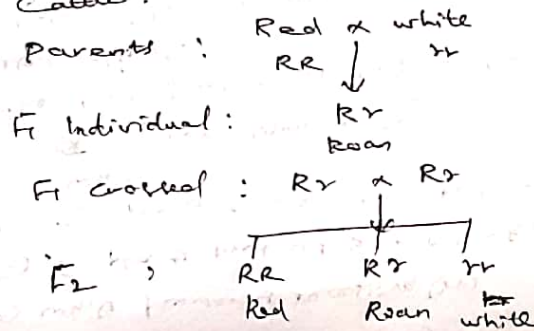 Cattle :
Parents : Red x white
RR rr
F1 Individual : Rr
Roan
F1 crossed : Rr x Rr
F2 , RR Rr rr
Red Roan white